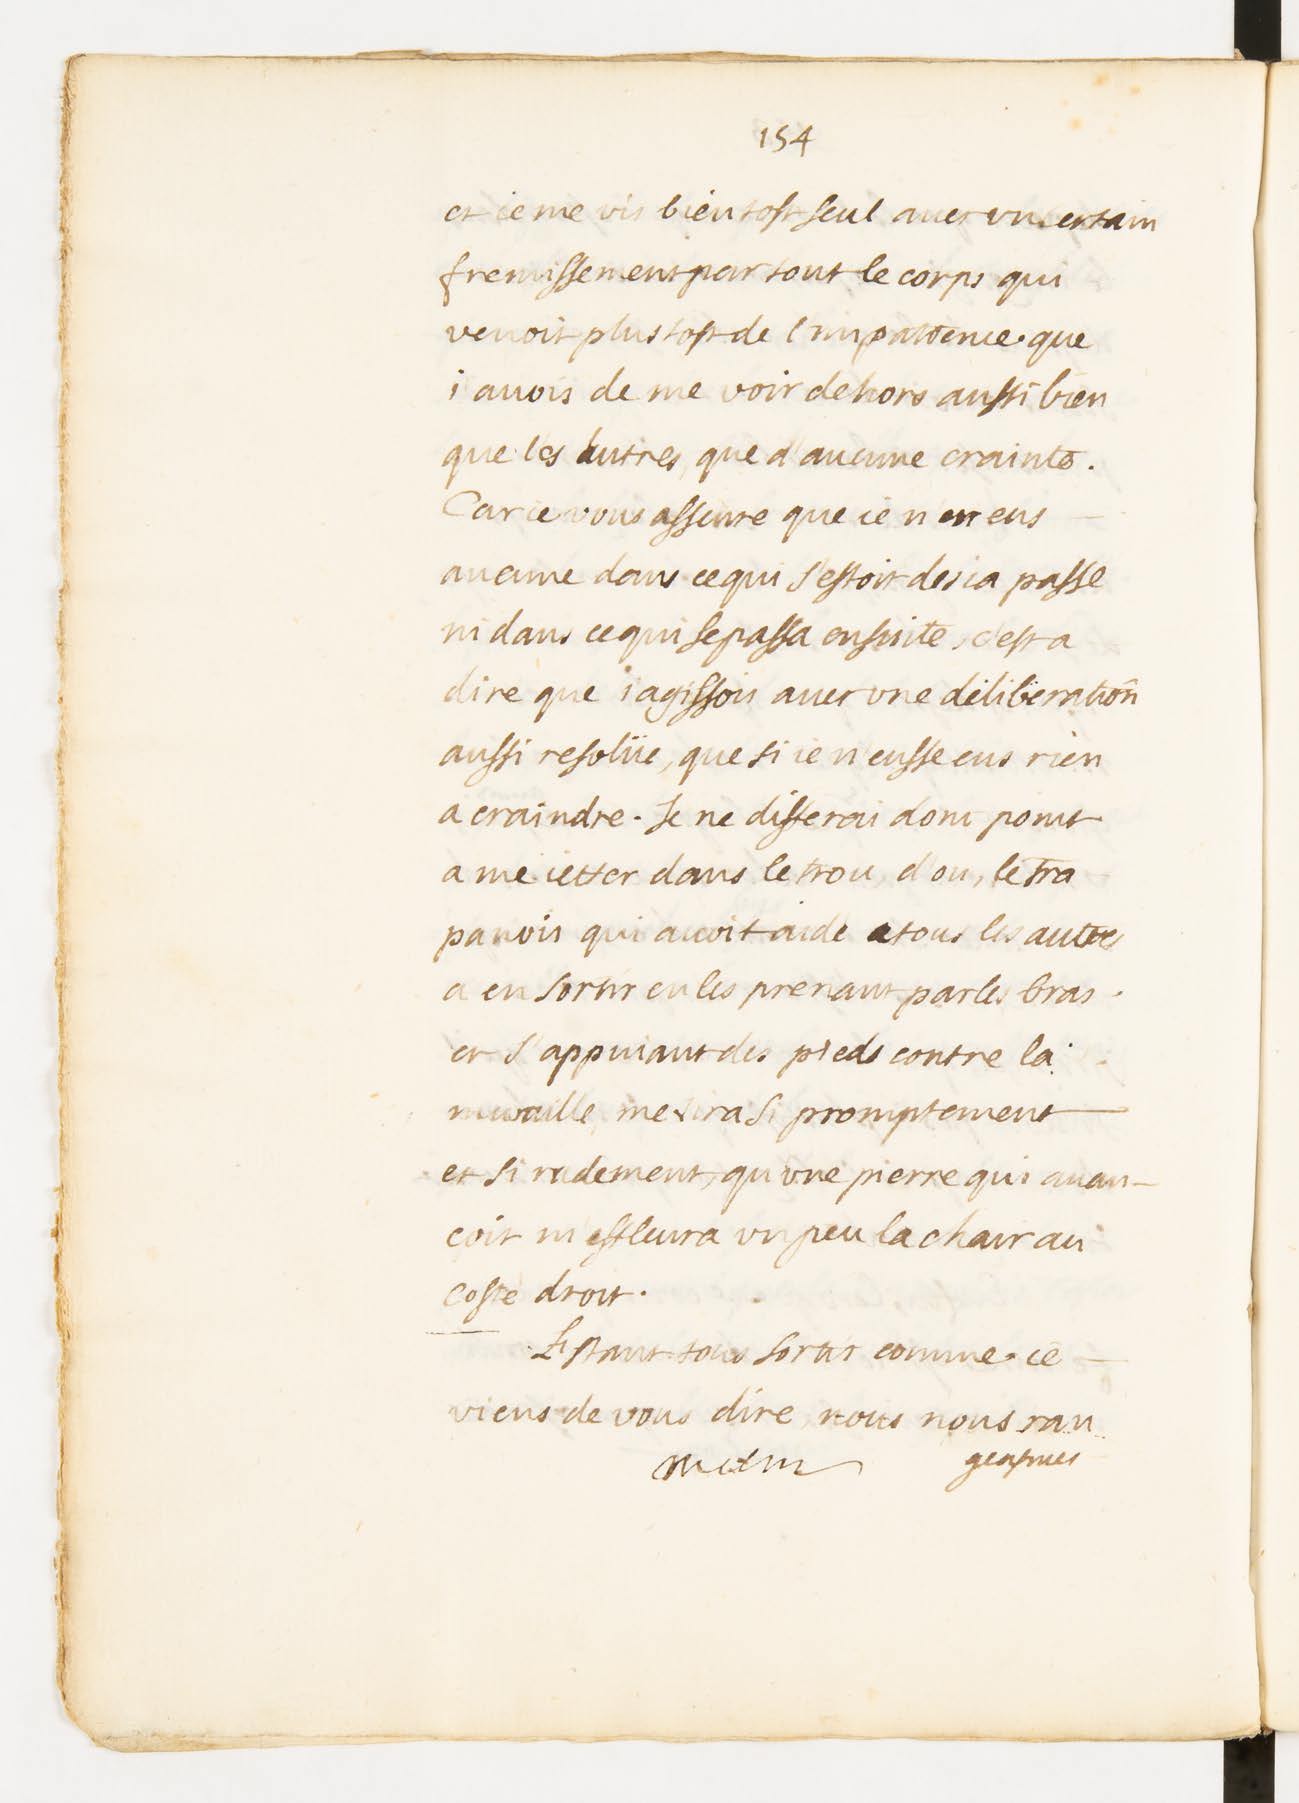 154
et ie me vis bien tost seul avec vn certain
fremissement par tout le corps qui
venoit plus tost de l impatience que
i auois de me voir dehors aussi bien
que les autres, que d'aucune crainte.
Car ie vous asseure que ie n en eus
aucune dans ce qui s'estoit desia passé
ni dans ce qui se passa ensuite, c'est a
dire que i agissois auec vne deliberation
aussi resolüe, que si ie n'eusse eus rien
a craindre. Je ne differai donc point
a me ietter dans le trou, d'ou, le tra
panois qui auoit aidé a tous les autres
a en sortir en les prenant par les bras.
et s'appuiant des pieds contre la
muraille, me tira si promptement
et si rudement, qu vne pierre qui auan-
coit m'effleura vn peu la chair au
costé droit.
Estant tous sortis comme ie
viens de vous dire, nous nous ran
geasmes